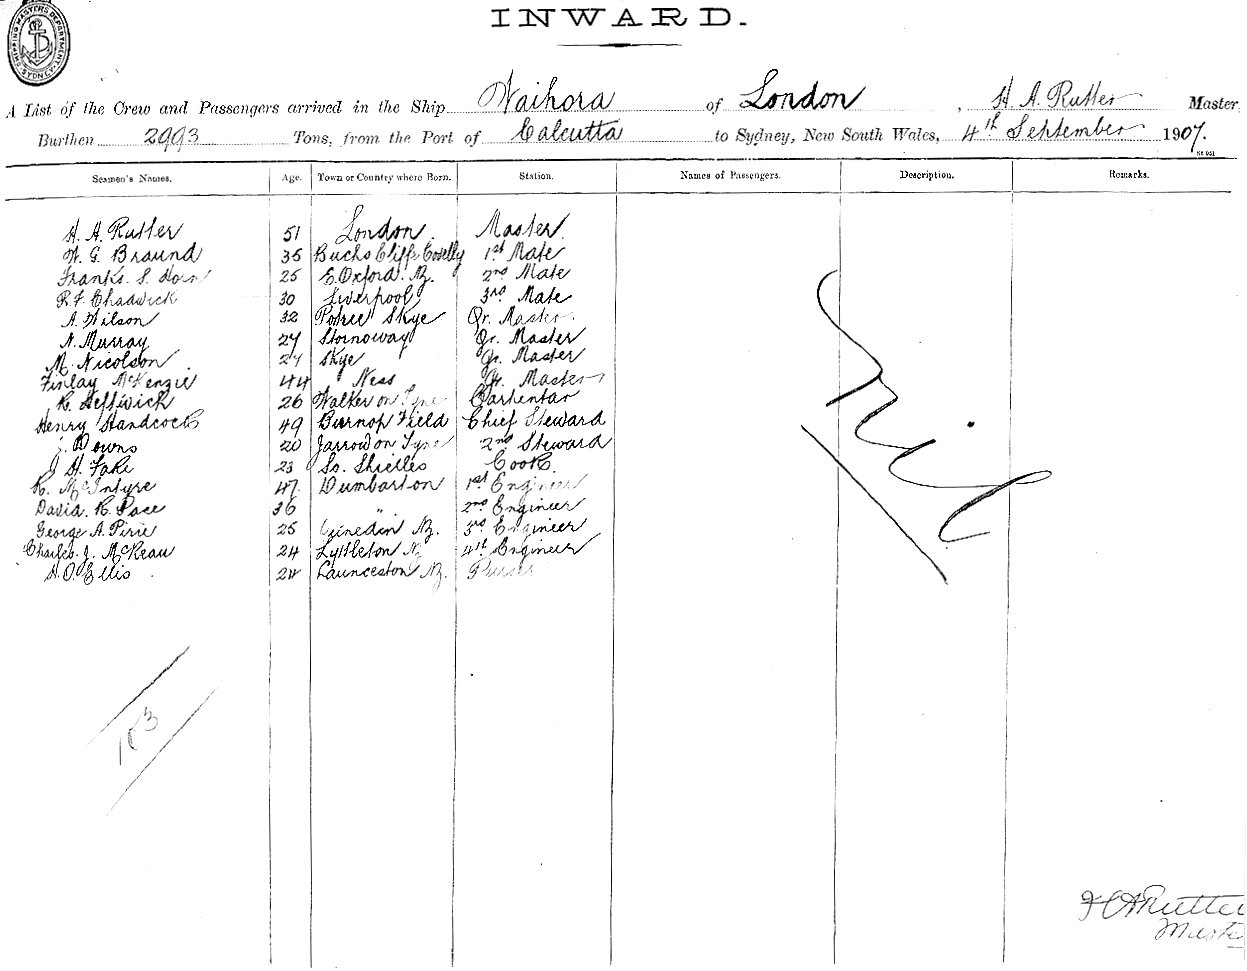 SHIPPING MASTERS DEPARTMENT SYDNEY
INWARD.
A List of the Crew and Passengers arrived in the Ship Waihora of London, H. A. Rutter Master
Burthen 2993 Tons, from the Port of Calcutta to Sydney, New South Wales, 4th September 1907.
Seamen's Names. Age. Town or Country where Born. Station. Names of Passengers. Description. Remarks.
H. A. Rutter 51 London. Master.
W. G. Braund 35 Bucks Cliffe Covelly 1st Mate
Franks. S. Horn 25 E. Oxford. NZ. 2nd Mate
R. F. Chadwick 30 Liverpool 3rd Mate
A. Wilson 32 Potree Skye Qr. Master
N. Murray 27 Stornoway Qr. Master
M. Nicolson 27 Skye Qr. Master
Finlay McKenzie 44 Ness Qr. Master
R. 26 Walker on Tyne Carpentar
Henry Handcock 49 Burnop Field Chief Steward
J. Downs 20 Jarrow on Tyne 2nd Steward
J. H. Fake 23 So. Shielles Cook.
R. McIntyre 47 Dumbarton 1st Engineer
David. R. Pace 36 " 2nd Engineer
George A. Pirie 25 Dunedin NZ. 3rd Engineer
Charles. J. McKeau 24 Lyttleton N 4th Engineer
H. O. Ellis 24 Launceston NZ. Purser
Nil
183
H A Rutter
Maste